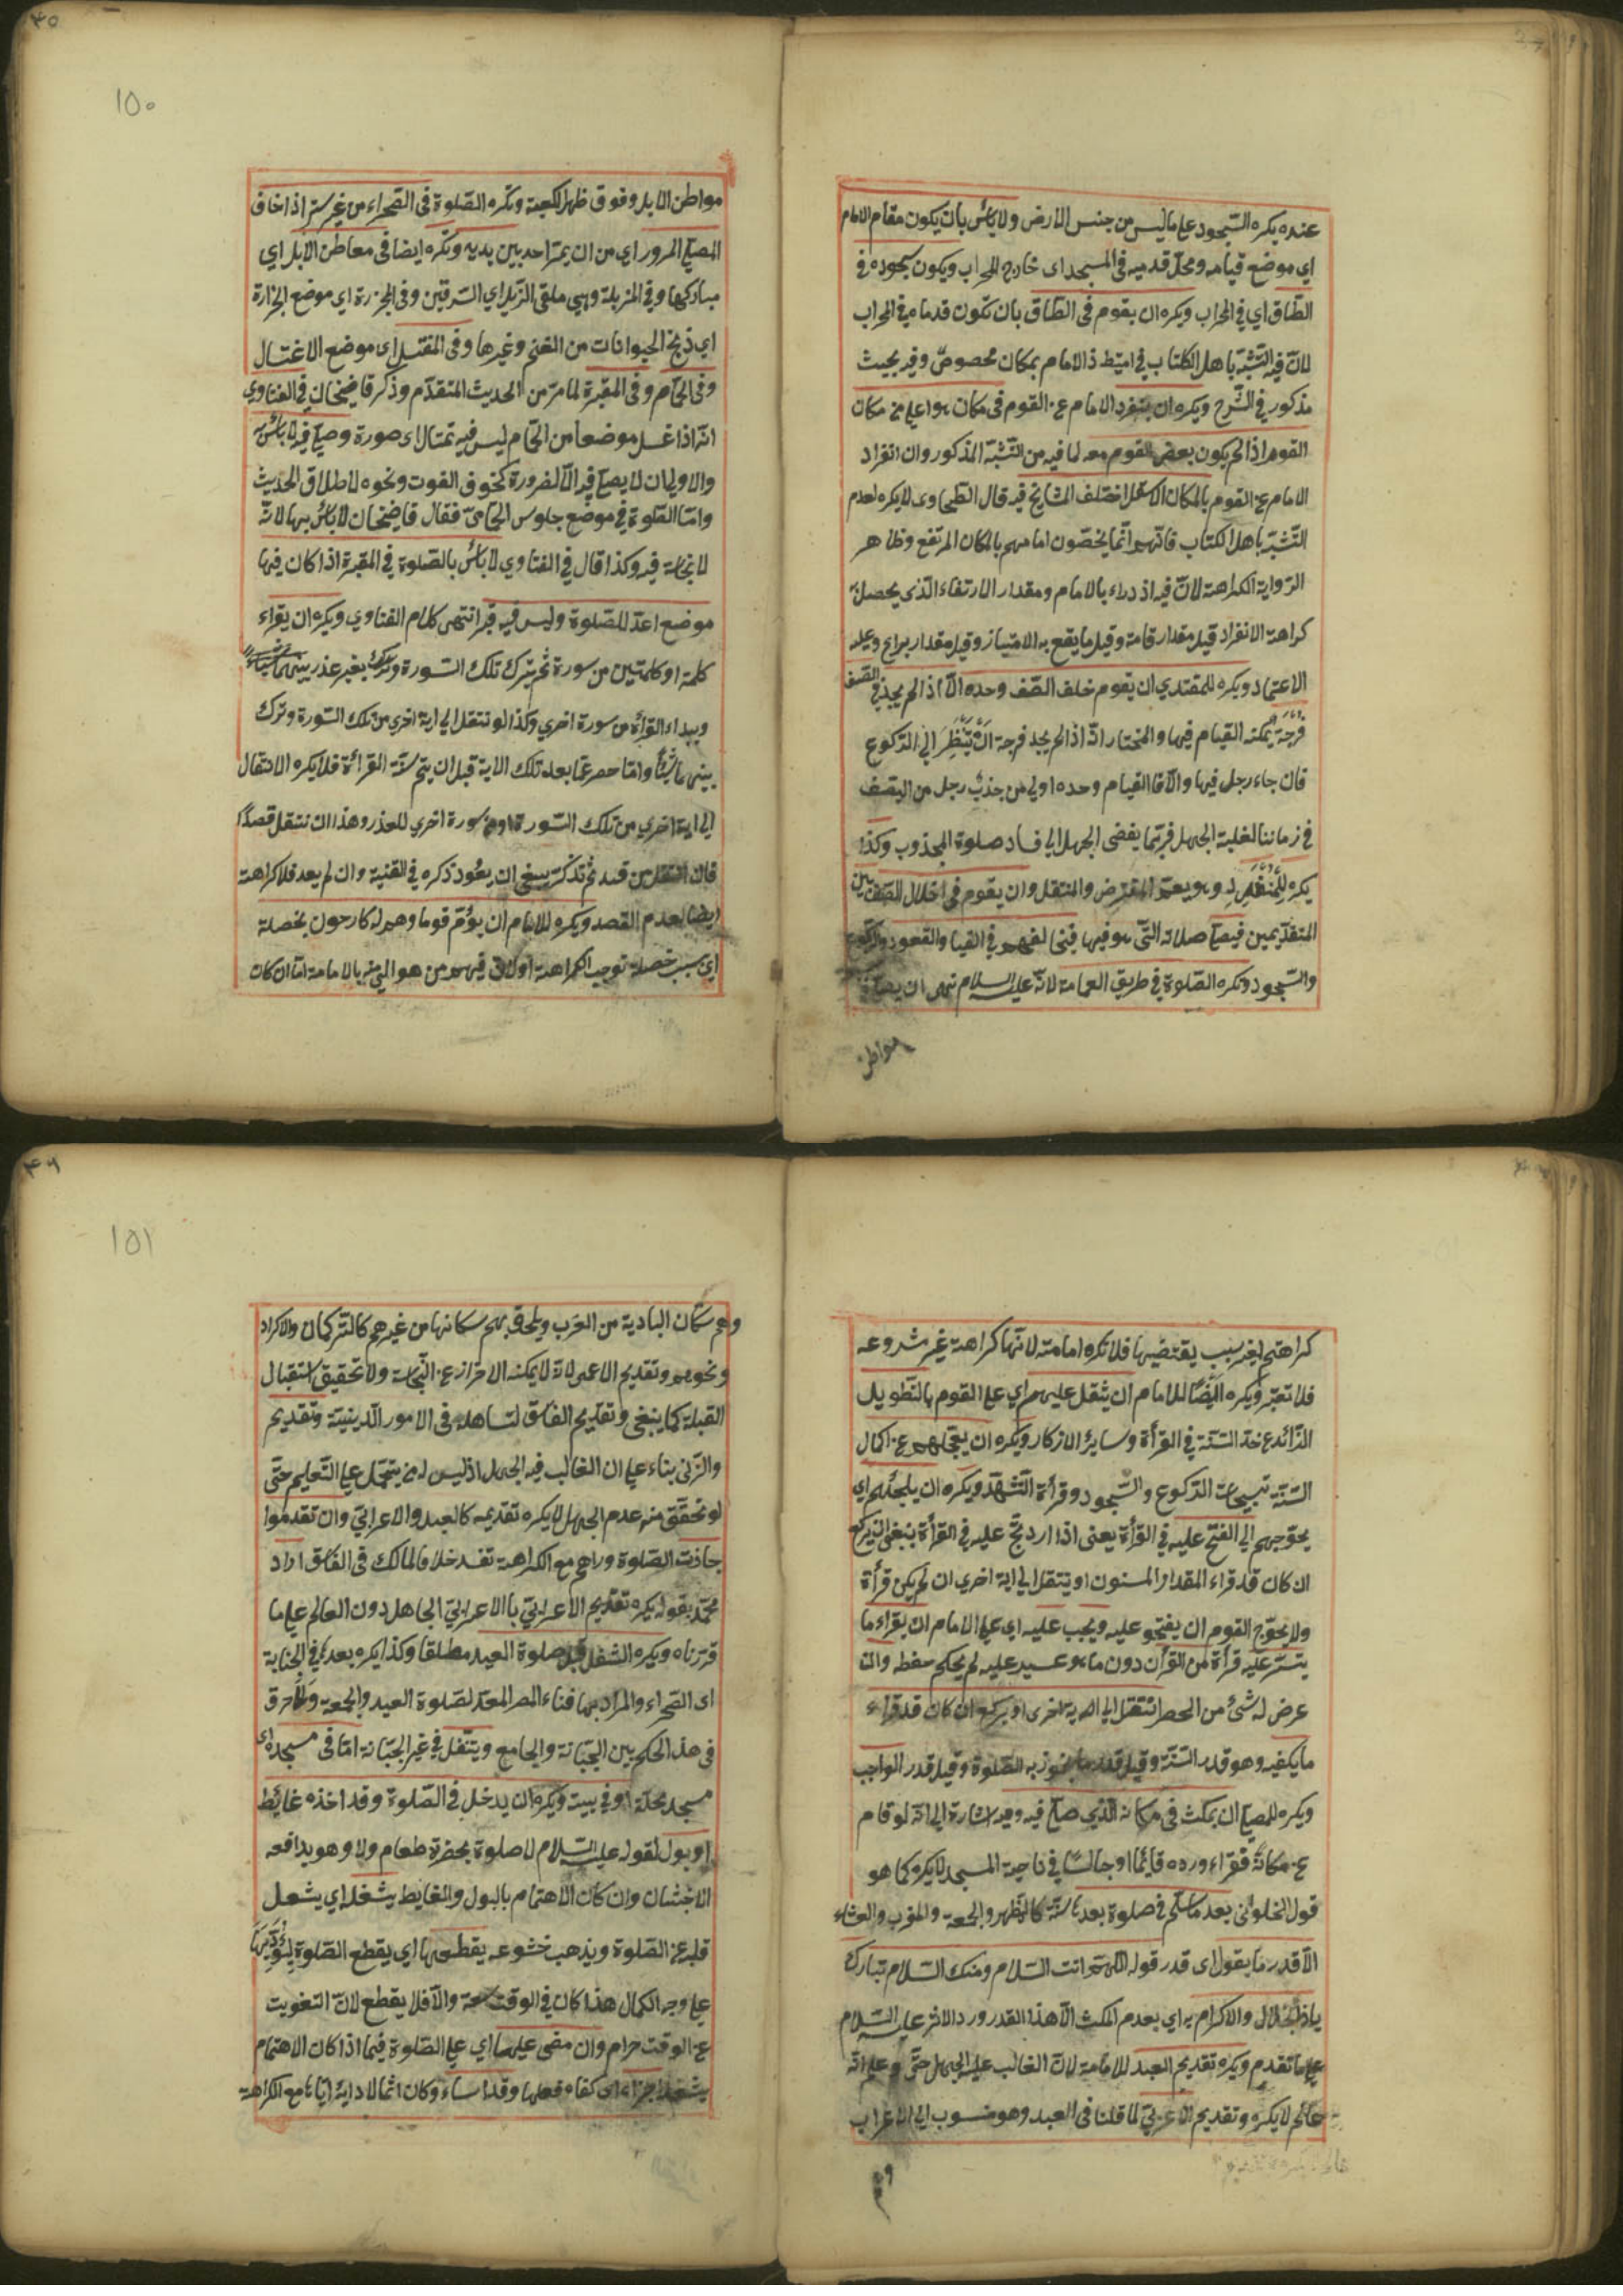 عنده يكره السّجود على ما ليس من جنس الارض ولا بأس بان يكون مقام الامام
اي موضع قيامه ومحلّ قدميه فى المسجد اى خارج المحراب ويكون سجوده في
الطّاق اي في المحراب ويكره ان يقوم فى الطّاق بان تكون قدماه في المحراب
لانّ فيه التّشبّه باهل الكتاب في امتياز الامام بمكان مخصوص وفيه بحيث
مذكور في الشّرح ويكره ان ينفرد الامام عن القوم فى مكان هو اعلى من مكان
القوم اذا لم يكون بعض القوم معه لما فيه من التّشبّه المذكور وان انفراد
الامام عن القوم بالمكان الاسفل اختلف المشايخ فيه قال الطّحاوى لا يكره لعدم
التّشبّه باهل الكتاب فانّهم انّما يخصّون امامهم بالمكان المرتفع وظاهر
الرّواية الكراهة لانّ فيه ازدراء بالامام ومقدار الارتفاء الّذى يحصل
كراهة الانفراد قيل مقدار قامة وقيل ما يقع به الامتياز وقيل مقدار ذراع وعليه
الاعتماد ويكره للمقتدي ان يقوم خلف الصّف وحده الّا اذا لم يجد في الصّف
فرجة يمكنه القيام فيها والمختار انّه اذا لم يجد فرجة ان ينتظر الى الرّكوع
فان جاء رجل فيها والّا فالقيام وحده اولى من جذب رجل من الصّف
في زماننا لغلبة الجهل فربّما يفضى الجهل الي فساد صلوة المجذوب وكذا
يكره للمنفرد وهو يعمّ المفترض والمتنفل وان يقوم فى خلال الصّف بين
المتقدّيمين فيصلّى صلاته التّى هو فيها فيخالفهم في القيام والقعود والركوع
والسّجود وتكره الصّلوة في طريق العامة لانّه عليه السلام نهى ان يصلّى
مواطن
مواطن الابل وفوق ظهر الكعبة وتكره الصّلوة فى الصّحراء من غير ستر اذا خاف
المصلّي المرور اي من ان يمرّ احد بين يديه وتكره ايضا فى معاطن الابل اي
مباركها وفي المزبلة وهي ملقى الزّبل اي السّرقين وفى المجزرة اي موضع الجزارة
اي ذبح الحيوانات من الغنم وغيرها وفى المغتسل اى موضع الاغتسال
وفى الحمّام وفى المقبرة لما مرّ من الحديث المتقدّم وذكر قاضيخان في الفتاوي
انّه اذا غسل موضعا من الحمّام ليس فيه تمثال اى صورة وصلّى فيه لا بأس به
والاولى ان لا يصلّى فيه الّا لضرورة كخوف الفوت ونحوه لاطلاق الحديث
وامّا الصّلوة في موضع جلوس الحمّاميّ فقال قاضيخان لا بأس بها لانّه
لا نجاسة فيه وكذا قال في الفتاوي لا بأس بالصّلوة في المقبرة اذا كان فيها
موضع اعدّ للصّلوة وليس فيه قبر انتهى كلام الفتاوي ويكره ان يقراء
كلمة او كلمتين من سورة ثم يترك تلك السّورة بغير عذر
ويبداء القراة من سورة اخري وكذا لو انتقل الي اية اخري من تلك السّورة وترك
بينهما شيئا وامّا حصر عمّا بعد تلك الاية قبل ان يتمّ سنّة القراءة فلا يكره الانتقال
الي اية اخري من تلك السّورة او من سورة اخري للعذر وهذا ان انتقل قصدا
فان انتقل من قصد ثم تذكّر ينبغى ان يعُود ذكره في القنية وان لم يعد فلا كراهة
ايضا لعدم القصد ويكره للامام ان يؤمّ قوما وهم له كارهون بخصلة
اي بسبب خصلة توجب الكراهة او لانّ فيهم من هو اولى منه بالامامة امّا ان كان
كراهتهم لغير سبب يقتضيها فلا تكره امامته لانّها كراهة غير مشروعه
فلا تعتبر ويكره ايضًا للامام ان يثقل عليهم اي على القوم بالتّطويل
الزّائد عن حدّ السّنّة في القرأة وسائر الاذكار ويكره ان يعجّلهم عن اكمال
السّنّة تسبيحات الرّكوع والسّجود وقرأة التّشهّد ويكره ان يلجئهم اي
يحوجهم الي الفتح عليه في القرأة يعنى اذا ارتجّ عليه في القرأة ينبغى ان يركع
ان كان قد قراء المقدار المسنون او ينتقل الي اية اخري ان لم يكن قرأة
ولا يحوّج القوم ان يفتحو عليه ويجب عليه اي على الامام ان يقراء ما
يتسّر عليه قرأة من القرأن دون ما هو عسير عليه لم يحكم حفظه وان
عرض له شئ من الحصر انتقل الي اية اخرى او يركع ان كان قد قراء
ما يكفيه وهو قدر السّنّة وقيل قدر ما يجوز به الصّلوة وقيل قدر الواجب
ويكره للمصلّي ان يمكث فى مكانه الّذي صلّى فيه وفيه اشارة الي انّه لو قام
عن مكانه فقراء ورده قائما او جالسًا في ناحية المسجد لا يكره كما هو
قول الحلوانى بعد ما سلّم في صلوة بعدها سنّة كالظّهر والجمعة والمغرب والعشاء
الّا قدر ما يقول اى قدر قوله اللّهمّ انت السّلام ومنك السّلام تباركت
يا ذا الجلال والاكرام به اي بعدم المكث الّا هذا القدر ورد الاثر عليه السّلام
على ما تقدم ويكره تقديم العبد للامامة لانّ الغالب عليه الجهل حتّى لو علم انّه
عالم لا يكره وتقديم الاعرابيّ لما قلنا فى العبد وهو منسوب الي الاعراب
وهم
وهم سكّان البادية من العرب ويلحق بهم سكانها من غيرهم كالتركمان والاكراد
ونحوهم وتقديم الاعمى لانّه لا يمكنه الاحتراز عن النّجاسة ولا تحقيق استقبال
القبلة كما ينبغى وتقديم الفاسق لتساهله فى الامور الدّينيّة وتقديم
ولد الزّنى بناء على ان الغالب فيه الجهل اذ ليس له من يتحمّل على التّعليم حتّى
لو تحقّق منه عدم الجهل لا يكره تقديمه كالعبد والاعرابيّ وان تقدموا
جازت الصّلوة وراهم مع الكراهة تفد خلافا لمالك فى الفاسق اراد
محمّد بقوله يكره تقديم الاعرابيّ باالاعرابيّ الجاهل دون العالم على ما
قرّرناه ويكره التنفل قبل صلوة العيد مطلقا وكذا يكره بعدها في الجبانة
اى الصّحراء والمراد بها فناء المصر المعدّ لصلوة العيد والجمعة ولا فرق
فى هذا الحكم بين الجبّانة والجامع ويتنفل في غير الجبّانة امّا فى مسجده اى
مسجد محلّته او في بيته ويكره ان يدخل في الصّلوة وقد اخذه غائط
او بول لقوله عليه السّلام لا صلوة بحضرة طعام ولا وهو يدافعه
الاخبثان وان كان الاهتمام بالبول والغايط يشغله اي يشغل
قلبه عن الصّلوة ويذهب خشوعه يقطعها اي يقطع الصّلوة ليؤدّيها
على وجه الكمال هذا كان في الوقت سعة والّا فلا يقطع لانّ التفويت
عن الوقت حرام وان مضى عليها اي على الصّلوة فيما اذا كان الاهتمام
يشغله اجزاه اى كفاه فعلها وقد اساء وكان اثما لادائه ايّاها مع الكراهة
١٥٠
١٥١
٤٥
٤٦